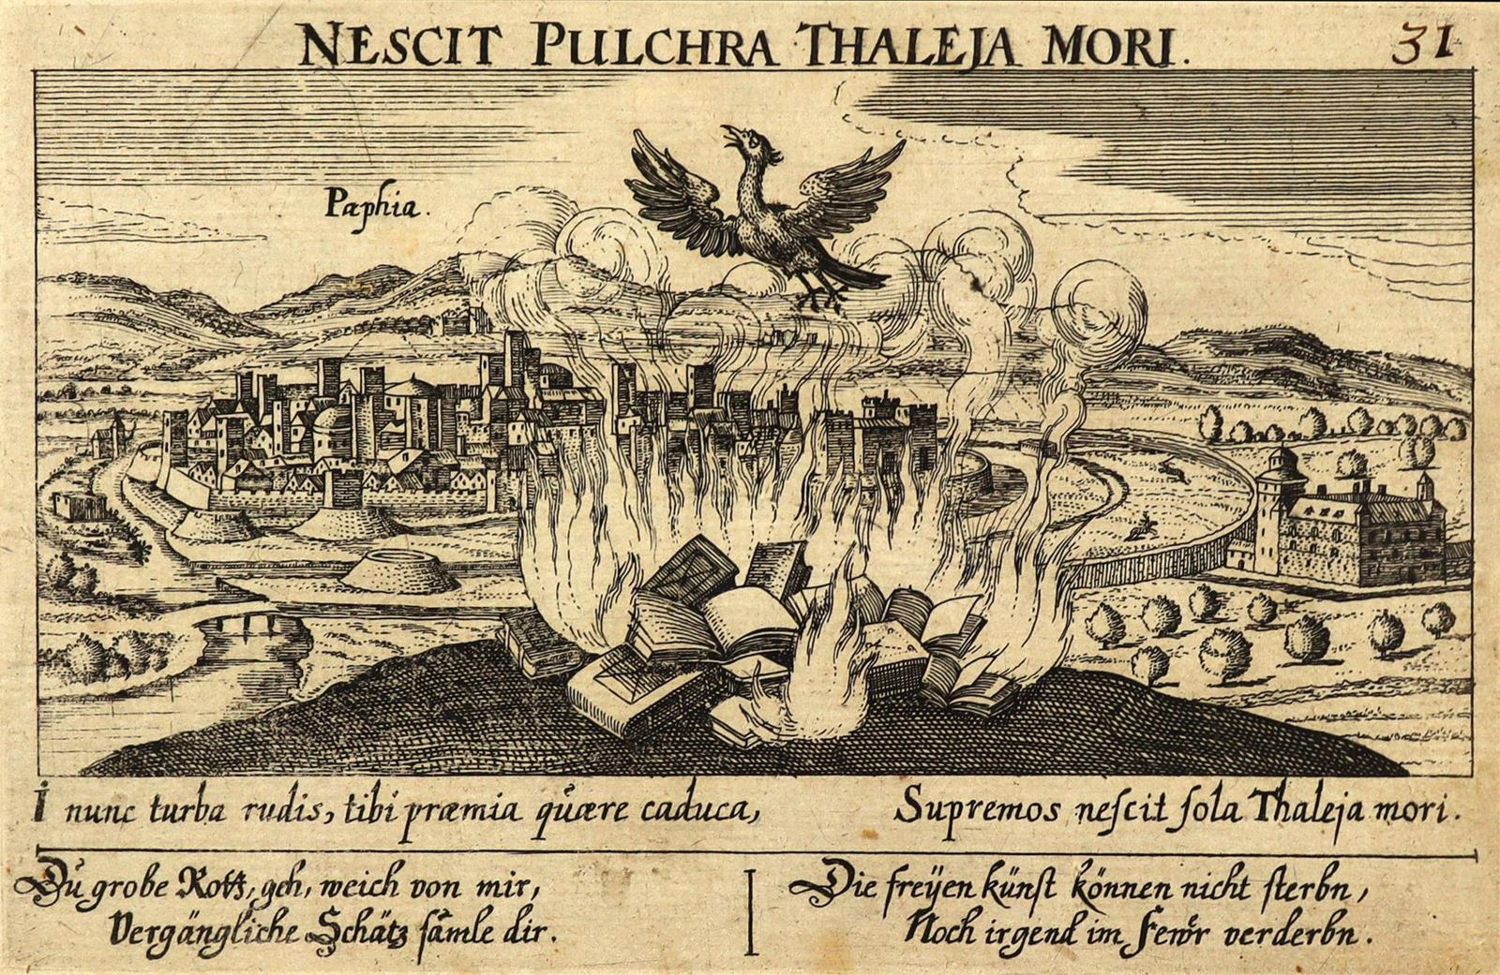 NESCIT PULCHRA THALEJA MORI.
31
Pæphia.
I nunc turba rudis, tibi præmia qůære caduca,
Supremos neſcit ſola Thaleja mori.
Dů grobe Rott, geh, weich von mir,
Vergängliche Schätz ſamle dir.
Die freÿen künſt können nicht ſterbn,
Noch irgend im Fewr verderbn.